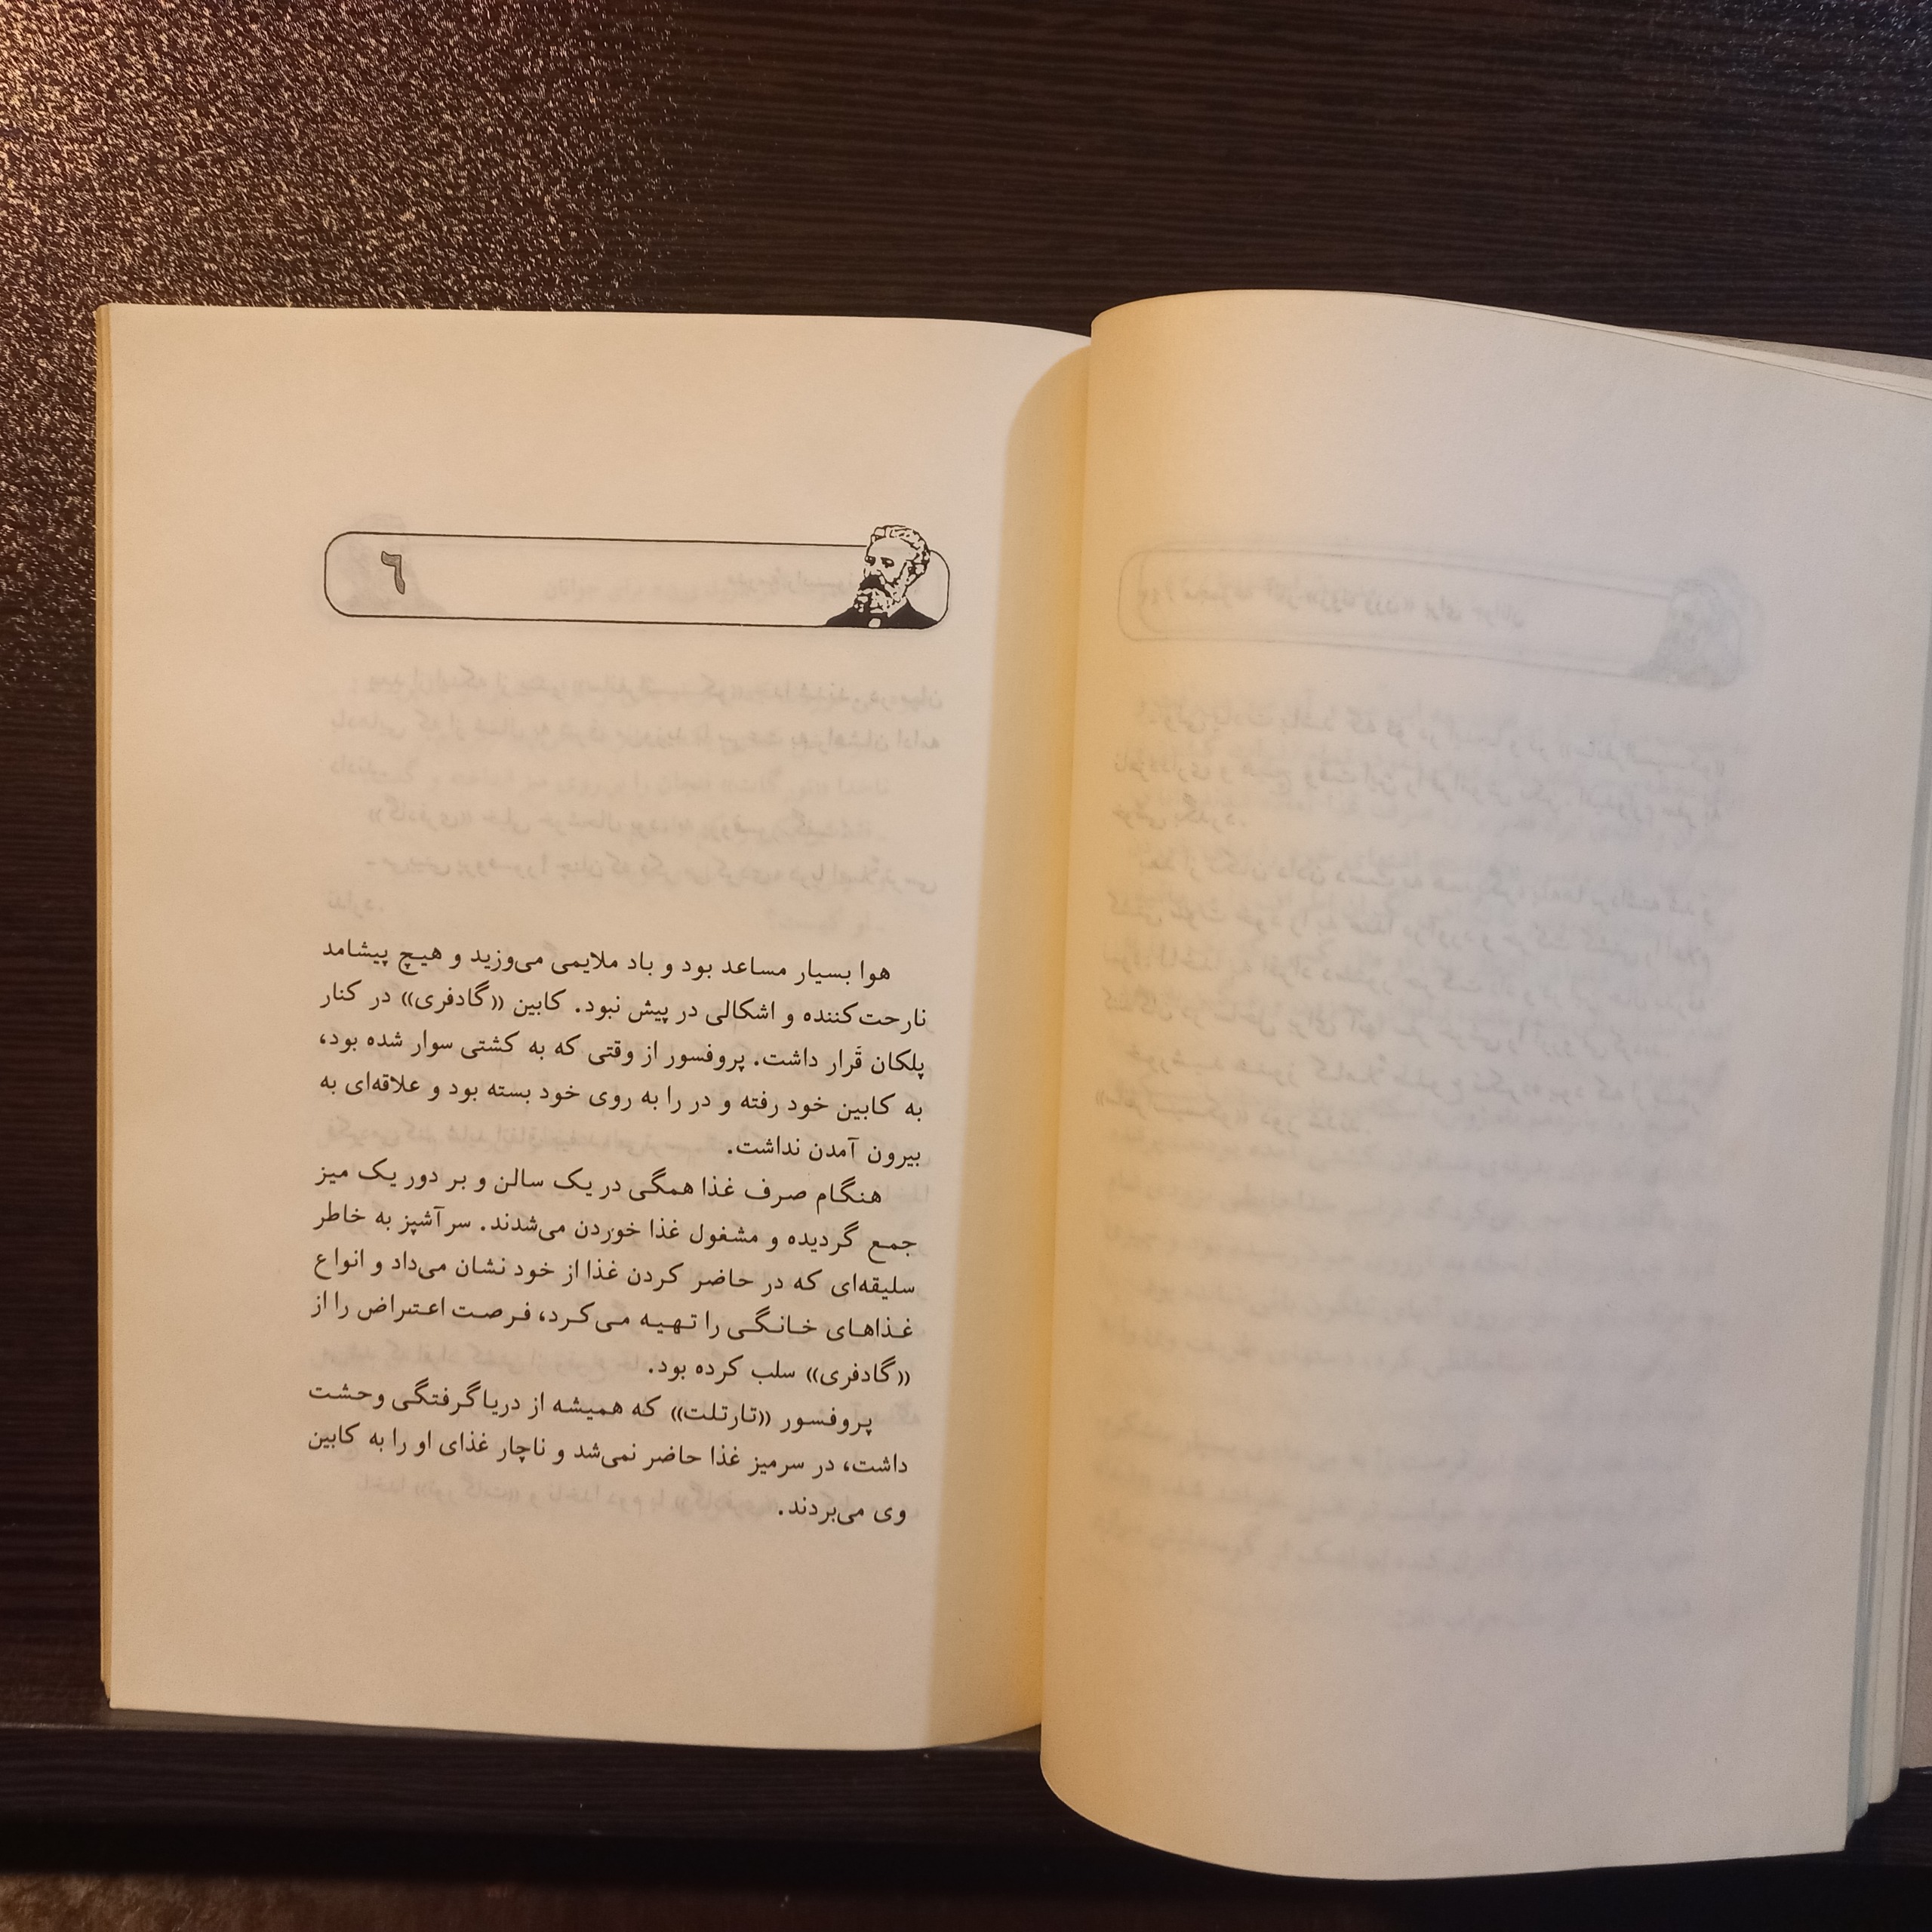 ٦
هوا بسیار مساعد بود و باد ملایمی می‌وزید و هیچ پیشامد
نارحت‌کننده و اشکالی در پیش نبود. کابین «گادفری» در کنار
پلکان قَرار داشت. پروفسور از وقتی که به کشتی سوار شده بود،
به کابین خود رفته و در را به روی خود بسته بود و علاقه‌ای به
بیرون آمدن نداشت.
هنگام صرف غذا همگی در یک سالن و بر دور یک میز
جمع گردیده و مشغول غذا خوردن می‌شدند. سرآشپز به خاطر
سلیقه‌ای که در حاضر کردن غذا از خود نشان می‌داد و انواع
غذاهای خانگی را تهیه می‌کرد، فرصت اعتراض را از
«گادفری» سلب کرده بود.
پروفسور «تارتلت» که همیشه از دریاگرفتگی وحشت
داشت، در سرمیز غذا حاضر نمی‌شد و ناچار غذای او را به کابین
وی می‌بردند.